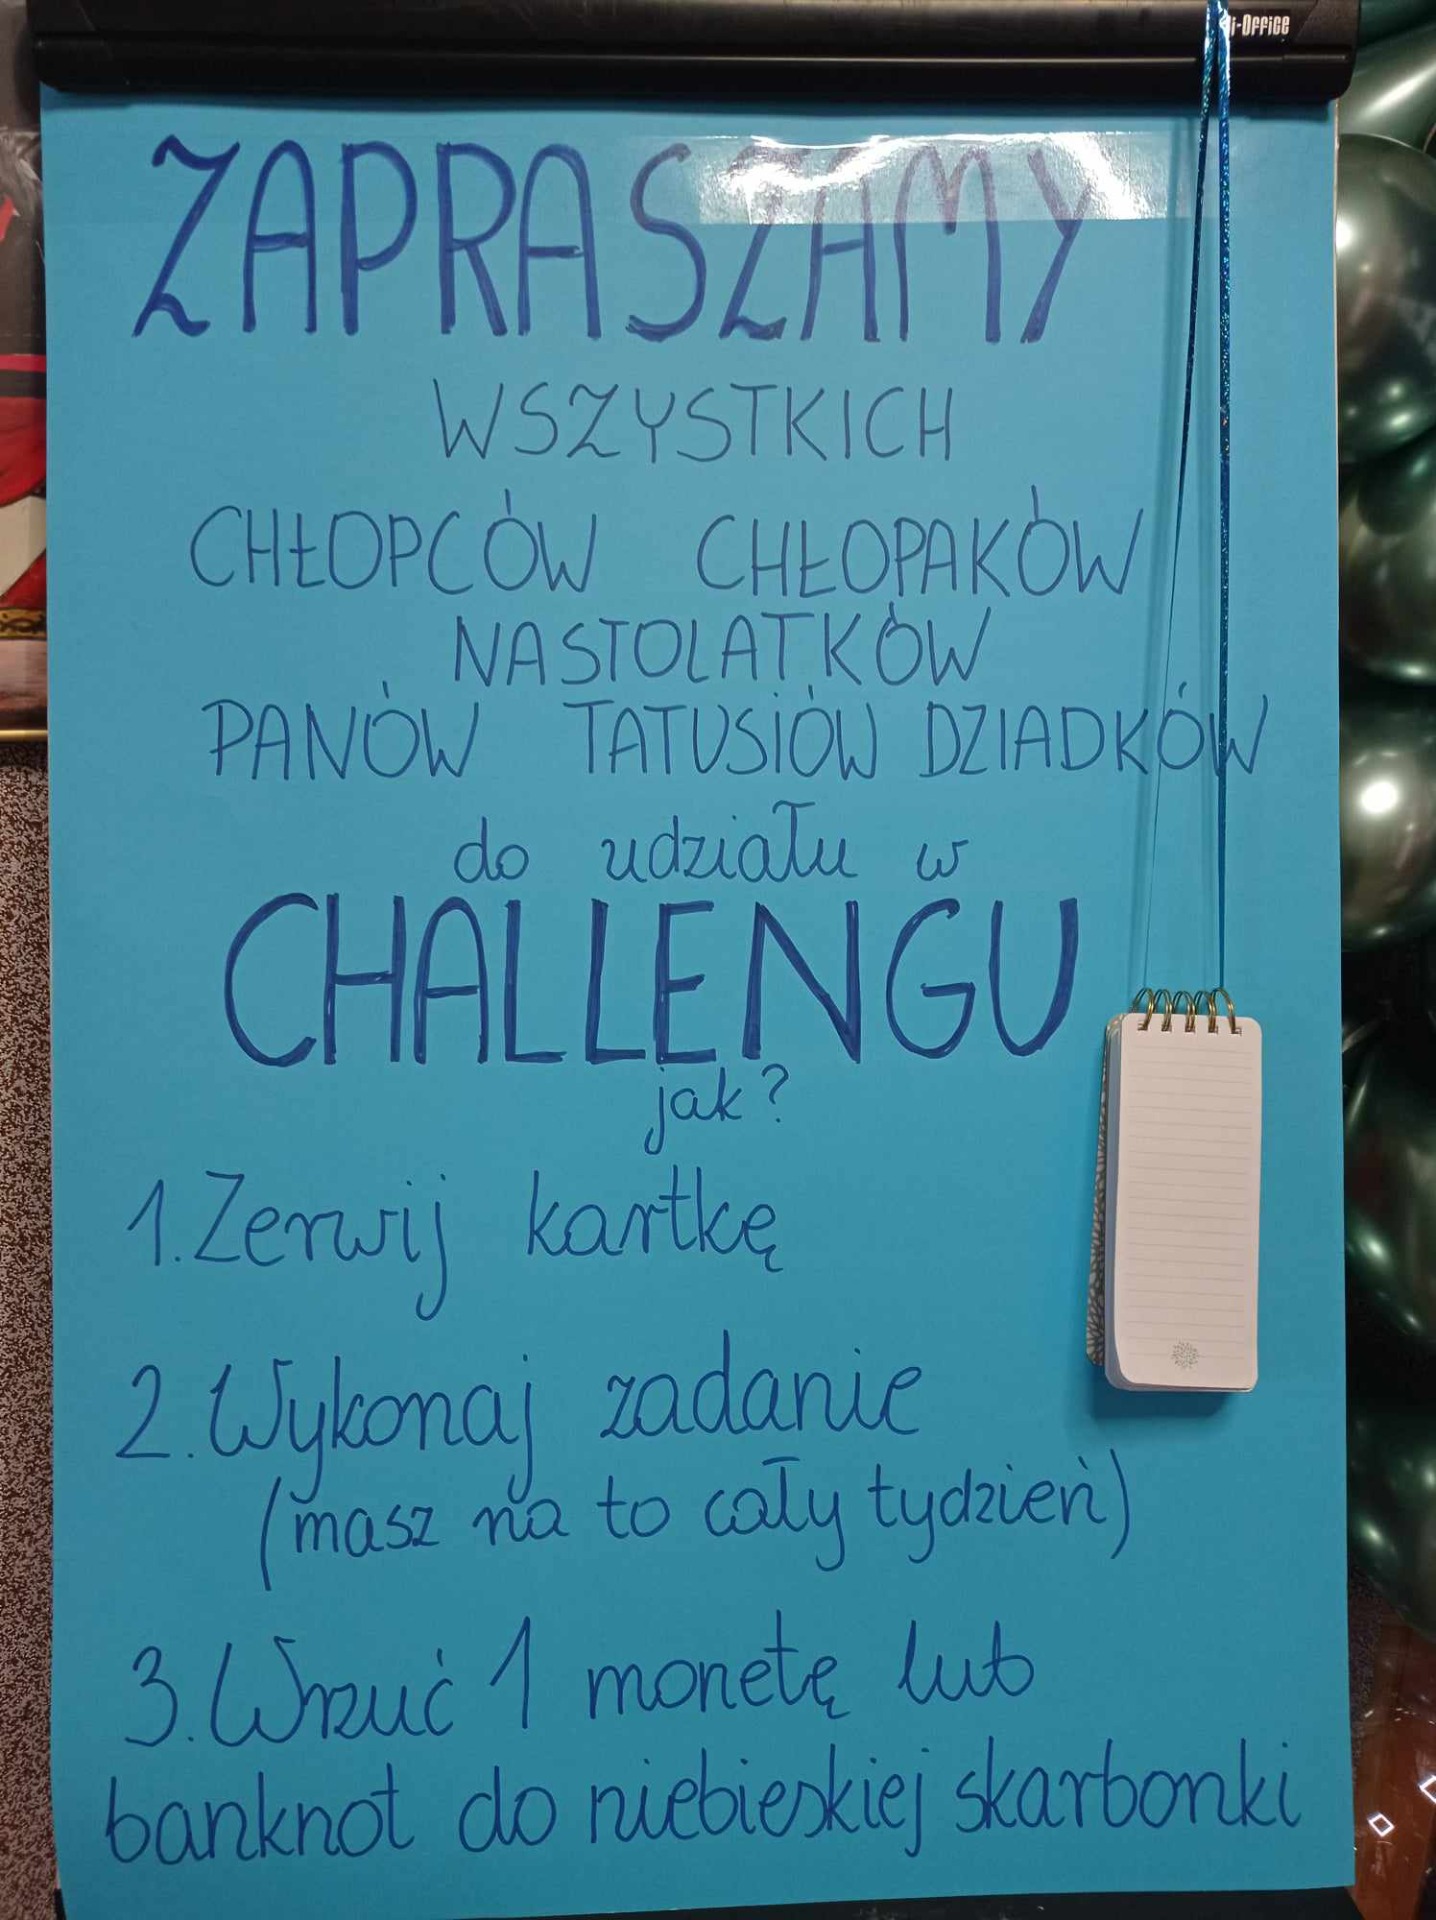 Bi-Office
ZAPRASZAMY
WSZYSTKICH
CHŁOPCÓW CHŁOPAKÓW
NASTOLATKÓW
PANÓW TATUSIÓW DZIADKÓW
do udziału w
CHALLENGU
jak?
1. Zerwij kartkę
2. Wykonaj zadanie
(masz na to cały tydzień)
3. Wrzuć 1 monetę lub
banknot do niebieskiej skarbonki